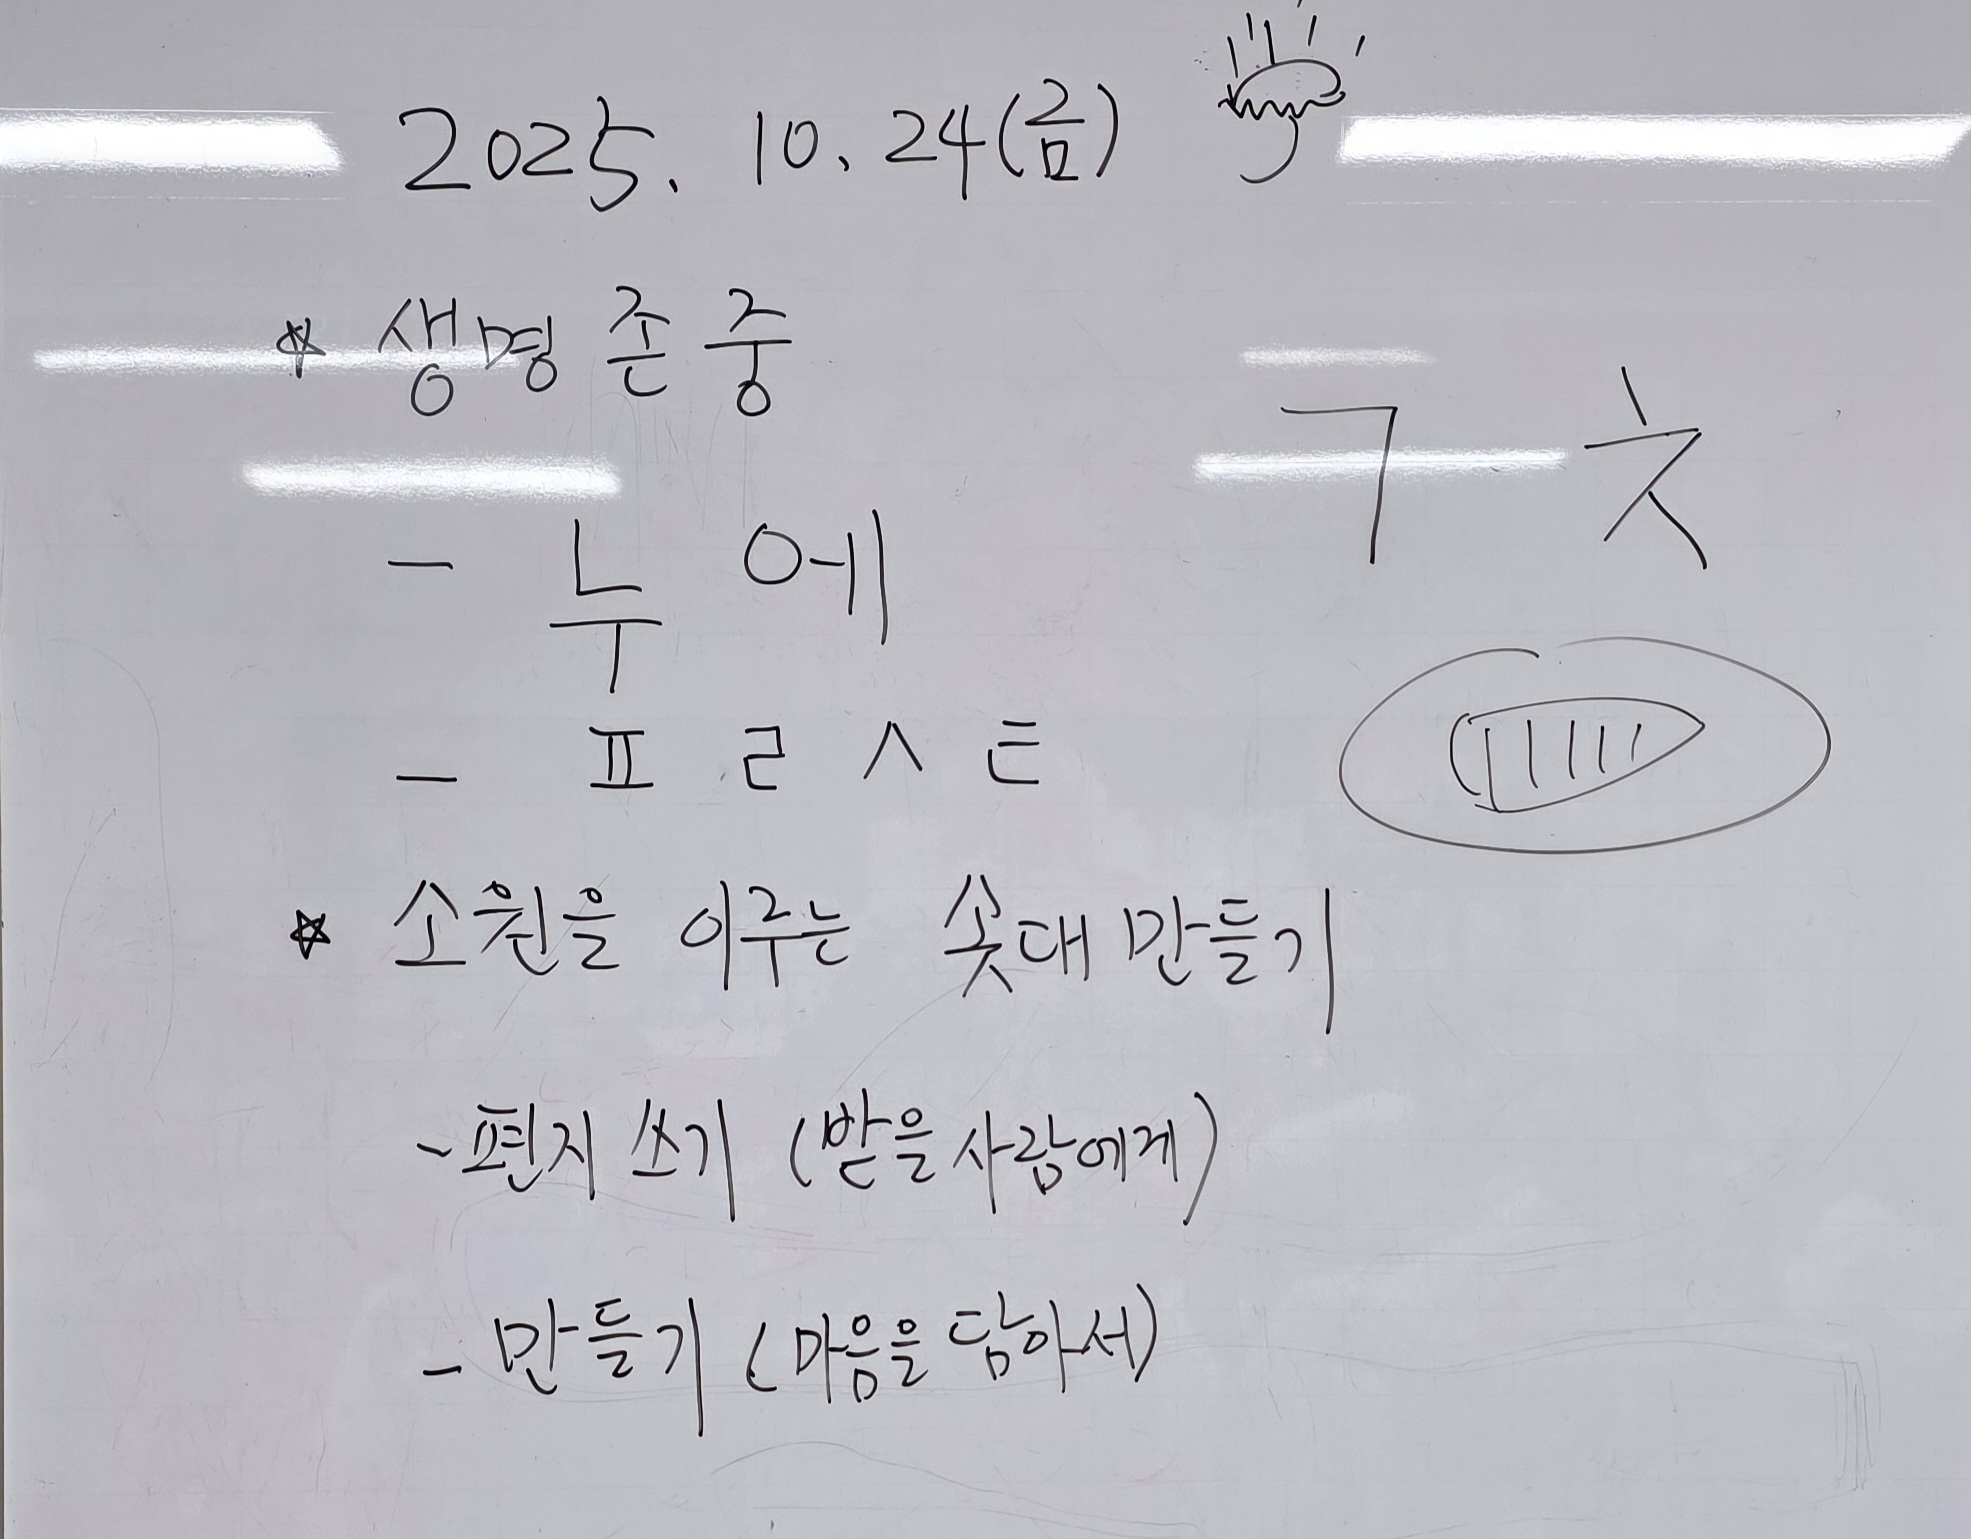 2025. 10. 24(금)
☆ 생명존중
ㄱ ㅊ
- 누에
- ㅍ ㄹ ㅅ ㅌ
☆ 소원을 이루는 솟대 만들기
- 편지 쓰기 (받을 사람에게)
- 만들기 (마음을 담아서)